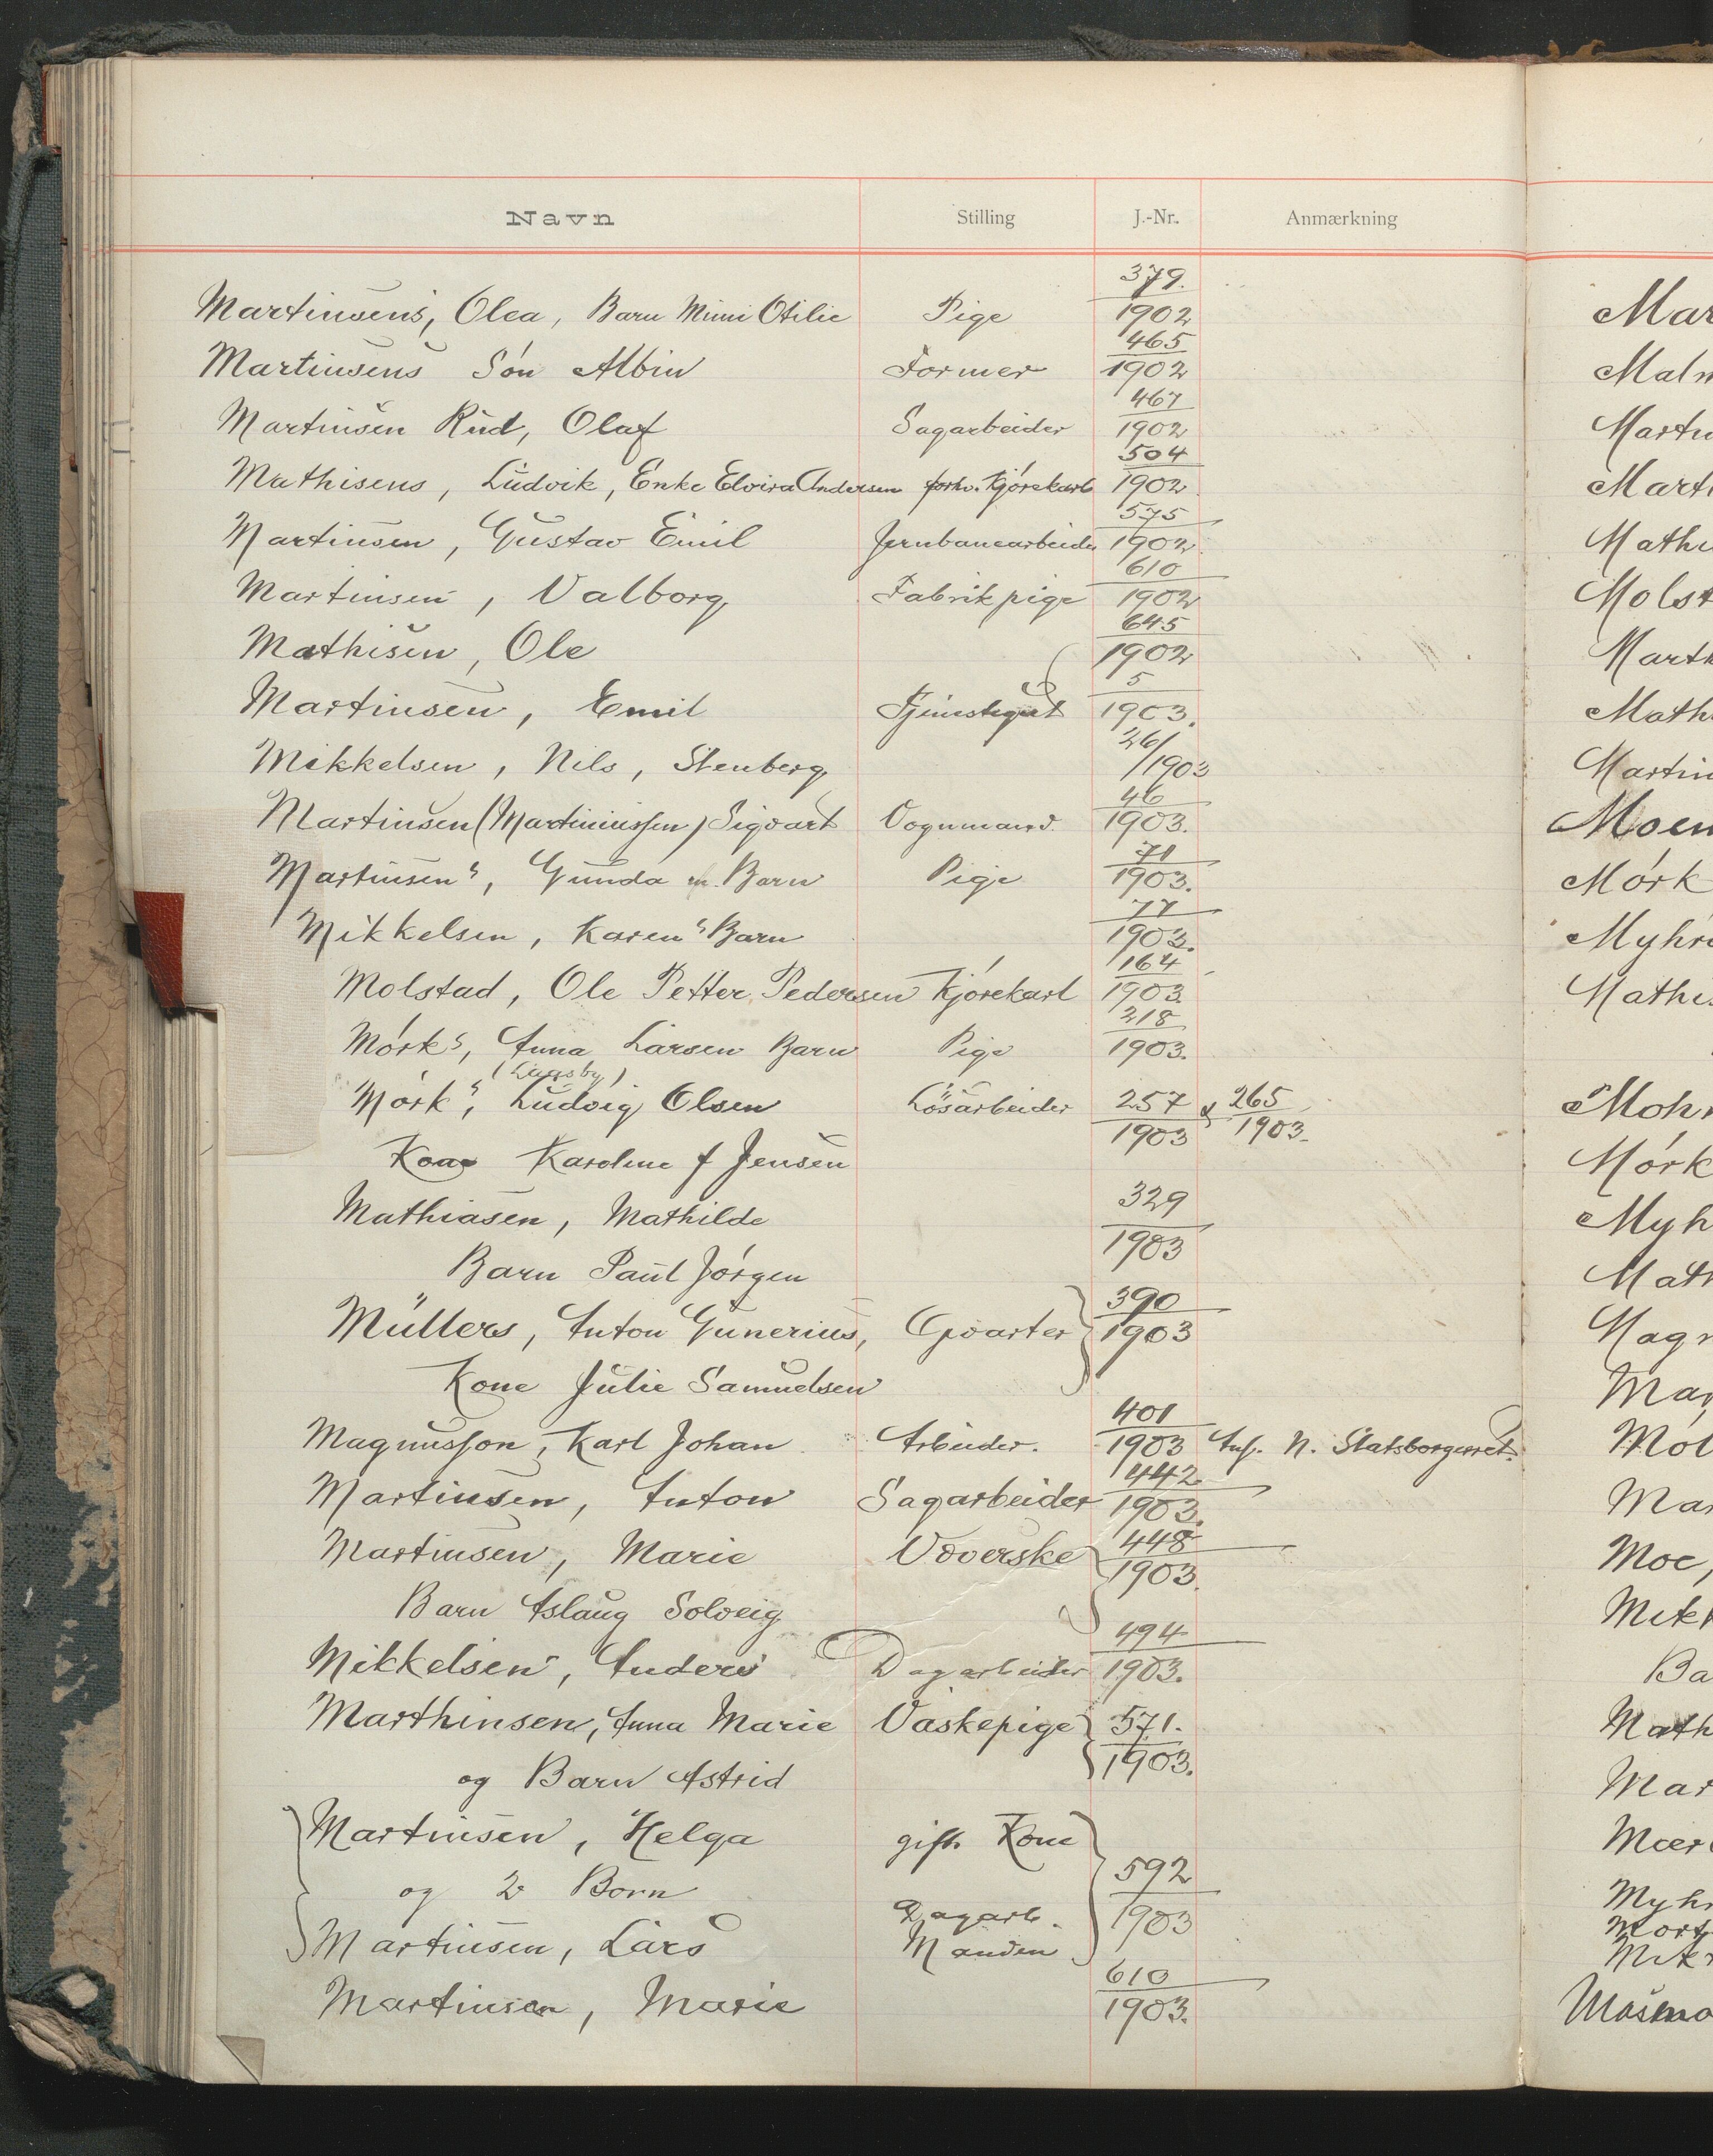 Navn Stilling J.-Nr. Anmærkning
Martinsens, Olea, Barn Mimi Otilie Pige 379./1902
Martinsens Søn Albin Former 465/1902
Martinsen Rud, Olaf Sagarbeider 467/1902
Mathisens, Ludvik, Enke Elvira Andersen forhv. Kjørekarl 504/1902
Martinsen, Gustav Emil Jernbanearbeider 575/1902
Martinsen, Valborg Fabrikpige 610/1902
Mathisen, Ole 645/1902
Martinsen, Emil Tjenestegut 5/1903.
Mikkelsen, Nils, Stenberg 26/1903
Martinsen (Martiniussen) Sigvart Vognmand 46/1903.
Martinsen's, Gunda m. Barn Pige 71/1903.
Mikkelsen, Karen's Barn 77/1903.
Molstad, Ole Petter Pedersen Kjørekarl 164/1903
Mørk's, Anna Larsen Barn Pige 218/1903.
(Lugsby)
Mørk's, Ludvig Olsen Løsarbeider 257/1903 & 265/1903.
Kone Karoline f Jensen
Mathiasen, Mathilde 329/1903
Barn Paul Jørgen
Müllers, Anton Gunerius, Gvarter 390/1903
Kone Julie Samuelsen
Magnusson, Karl Johan Arbeider. 401/1903 Ans. N. Statsborgerret.
Martinsen, Anton Sagarbeider 442/1903.
Martinsen, Marie Væverske 448/1903.
Barn Aslaug Solveig
Mikkelsen, Anders Dagarbeider 494/1903.
Marthinsen, Anna Marie Vaskepige 571./1903.
og Barn Astrid
Martinsen, Helga gift Kone
og 2 Born 592/1903
Martinsen, Lars Dagarb. Manden
Martinsen, Marie 610/1903.
Mar
Maln
Mart
Mathi
Molst
Mart
Math
Martin
Moen
Mørk
Myhr
Mathi
Moh
Mørk
Myh
Math
Mag
Mar
Møl
Mar
Moe,
Mik
Ba
Math
Mar
Mær
Myh
Mort
Mik